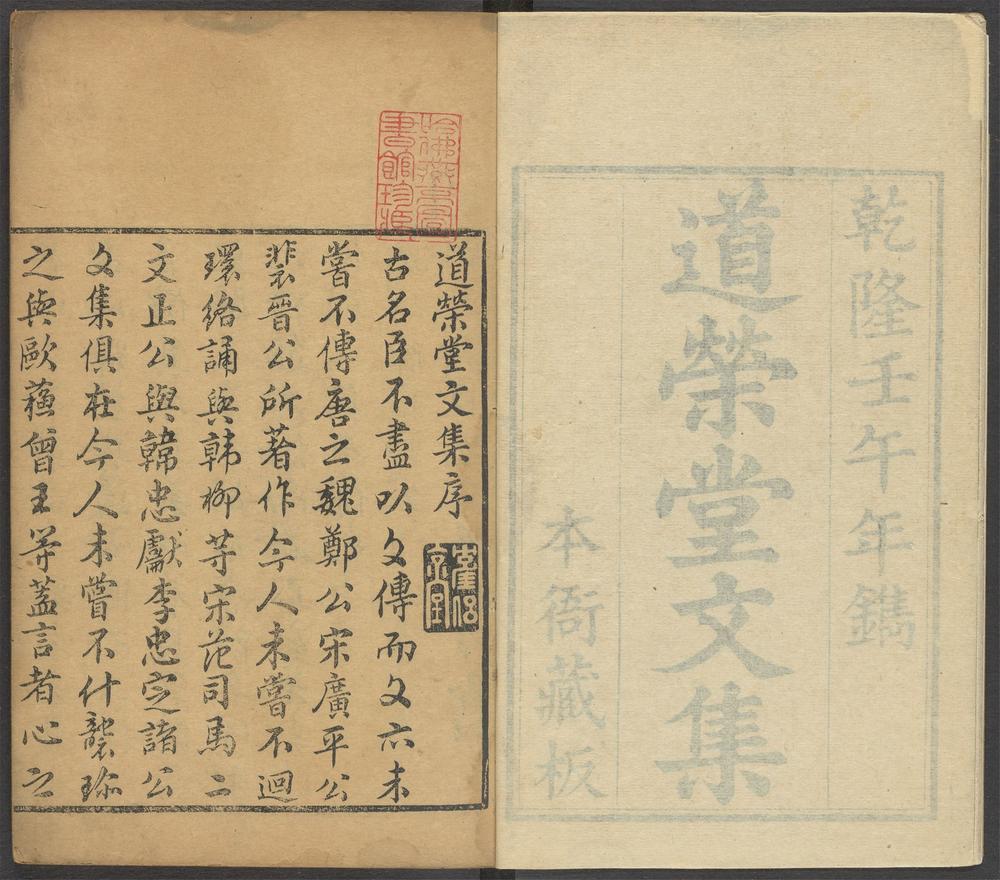 乾隆壬午年鐫
道榮堂文集
本衙藏板
哈佛燕京圖
書館珍藏
道榮堂文集序
古名臣不盡以文傳而文亦未
嘗不傳唐之魏鄭公宋廣平公
裴晉公所著作今人未嘗不迴
環絡誦與韓柳等宋范司馬二
文正公與韓忠獻李忠定諸公
文集俱在今人未嘗不什襲珍
之與歐蘓曾王等蓋言者心之